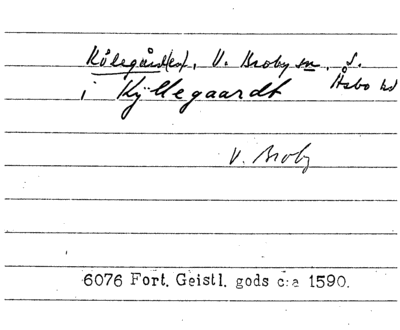 Kålegård(en), V. Broby sn, S.
Åsbo hd
i Kyllegaardt
V. Broby
6076 Fort. Geistl. gods c:a 1590.